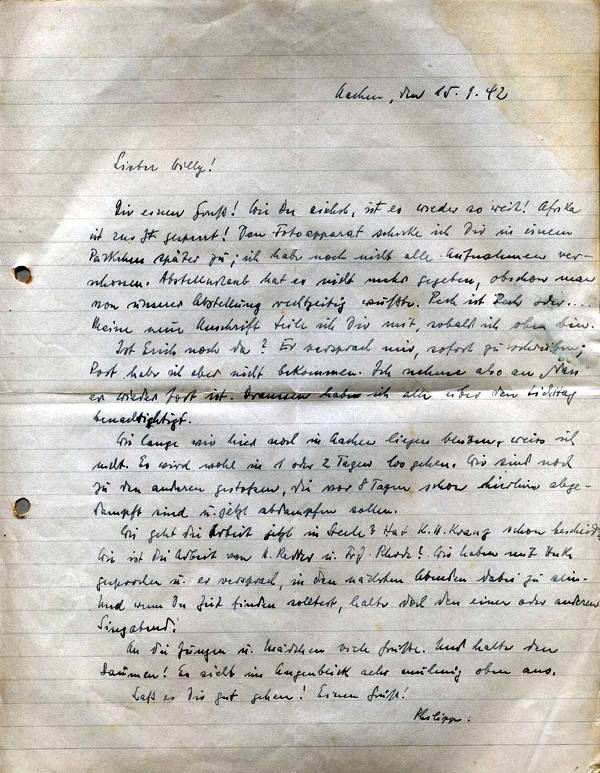 Aachen, den 15.9.42
Lieber Willy!
Dir einen Gruß! Wie Du siehst, ist es wieder so weit! Afrika
ist zur Zt. gesperrt! Den Fotoapparat schicke ich Dir in einem
Päckchen später zu; ich habe noch nicht alle Aufnahmen ver-
schossen. Abstellurlaub hat es nicht mehr gegeben, obschon man
von unserer Abstellung rechtzeitig wußte. Pech ist Pech oder...
Meine neue Anschrift teile ich Dir mit, sobald ich oben bin.
Ist Erich noch da? Er versprach mir, sofort zu schreiben;
Post habe ich aber nicht bekommen. Ich nehme also an,
er wieder fort ist. Draussen habe ich alle über den
benachrichtigt.
Wie lange wir hier noch in Aachen liegen bleiben, weiss ich
nicht. Es wird wohl in 1 oder 2 Tagen losgehen. Wir sind noch
zu den anderen gestoßen, die vor 8 Tagen schon hierhin abge-
dampft sind u. jetzt abdampfen sollen.
Wie geht die Arbeit jetzt in Steele? Hat K.H. Kranz schon Bescheid?
Wie ist die Arbeit von u. Wir haben mit
gesprochen u. er versprach, in den nächsten Abenden dabei zu sein.
Und wenn Du Zeit finden solltest, halte doch den einen oder anderen
Singabend!
An die Jungen u. Mädchen viele Grüße. Und halte den
Daumen! Es sieht im Augenblick sehr mulmig oben aus.
Laß es Dir gut gehen! Einen Gruß!
Philipp.